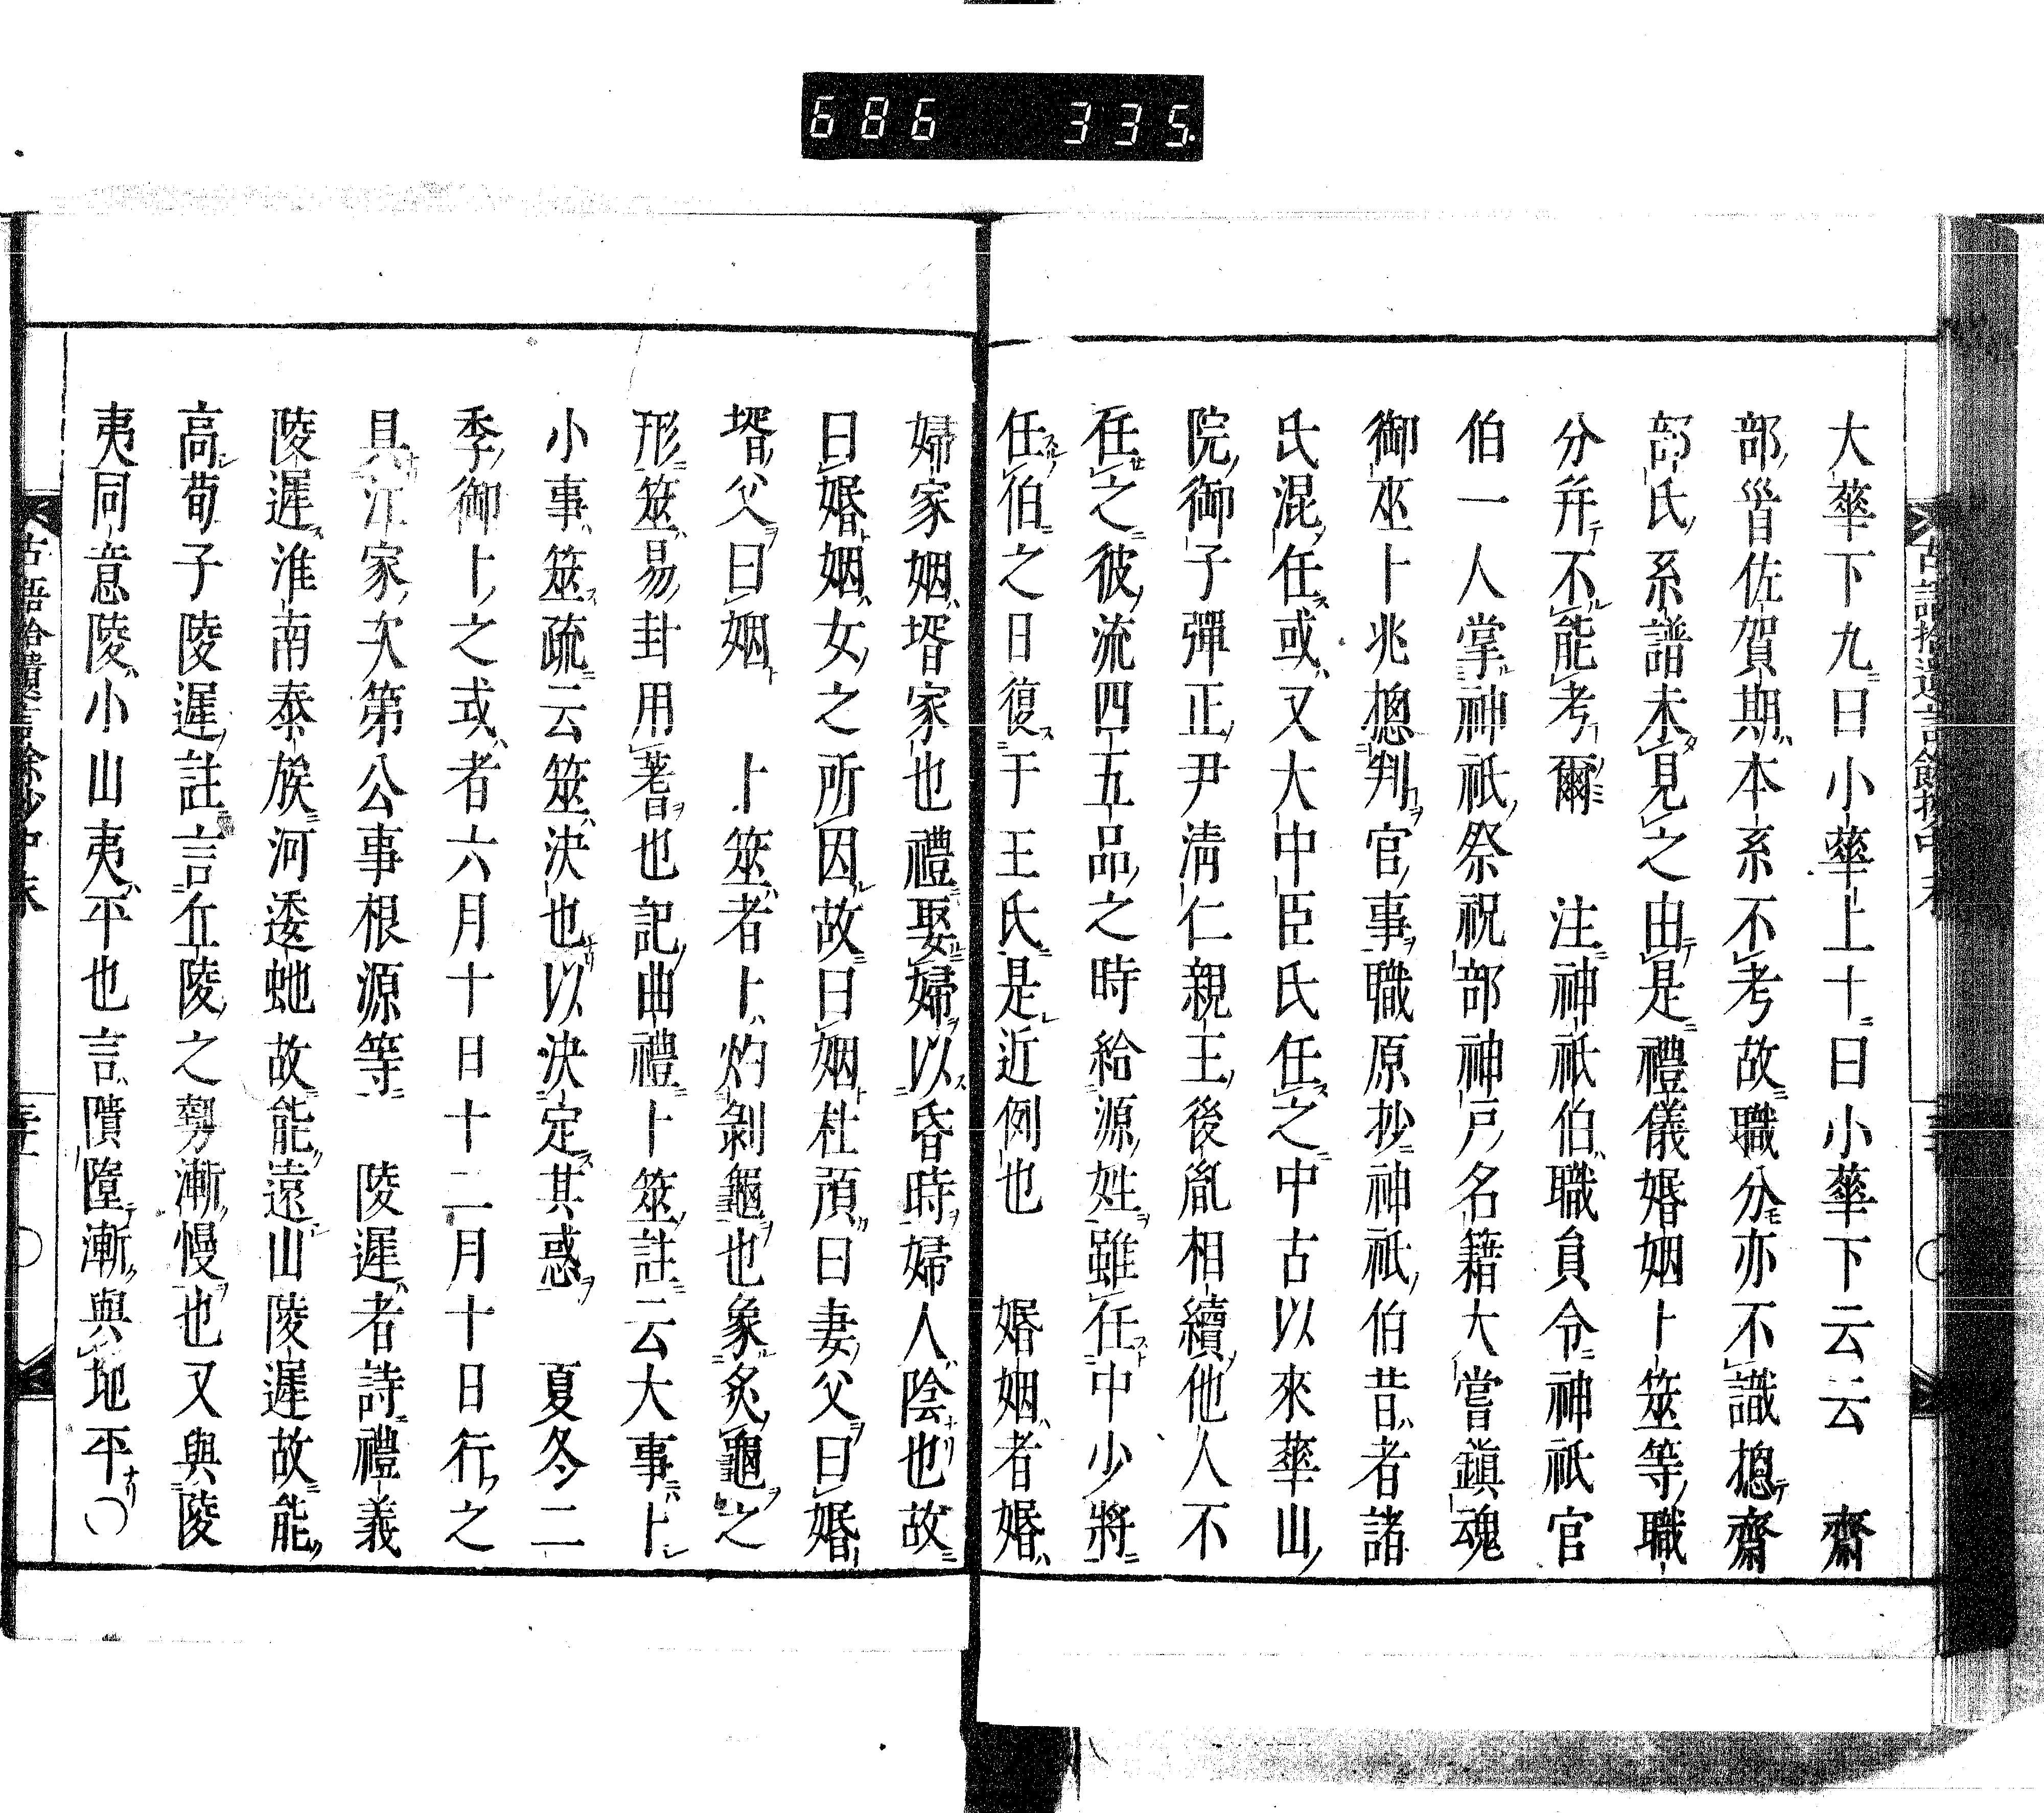 686 335
大華下九曰小華上十曰小華下云云 齋
部首佐賀期本系不考故職分亦不識摠齋
部氏系譜未見之由是禮儀婚姻卜筮等職
分幷不能考爾 注神祇伯職員令神祇官
伯一人掌神祇祭祝部神戸名籍大嘗鎭魂
御巫卜兆摠判官事職原抄神祇伯昔者諸
氏混任或又大中臣氏任之中古以來華山
院御子彈正尹淸仁親王後胤相續他人不
任之彼流四五品之時給源姓雖任中少將
任伯之日復于王氏是近例也 婚姻者婚
婦家姻壻家也禮娶婦以昏時婦人陰也故
曰婚姻女之所因故曰姻杜預曰妻父曰婚
壻父曰姻 卜筮者卜灼剝龜也象炙龜之
形筮易卦用蓍也記曲禮卜筮註云大事卜
小事筮疏云筮決也以決定其惑 夏冬二
季御卜之或者六月十日十二月十日行之
具江家次第公事根源等 陵遲者詩禮義
陵遲淮南泰族河逶虵故能遠山陵遲故能
高荀子陵遲註言丘陵之勢漸慢也又與陵
夷同意陵小山夷平也言隤墮漸與地平〇
古語拾遺言餘抄中末